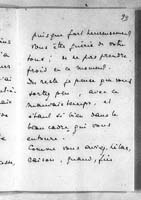 93
puisque fort heureusement
vous êtes guérie de votre
toux; de ne pas prendre
froid en ce moment.
Du reste je pense que vous
sortez peu, avec ce
mauvais temps, et
étant si bien dans le
beau cadre qui vous
entoure.
Comme vous aviez, hélas,
raison, quand,